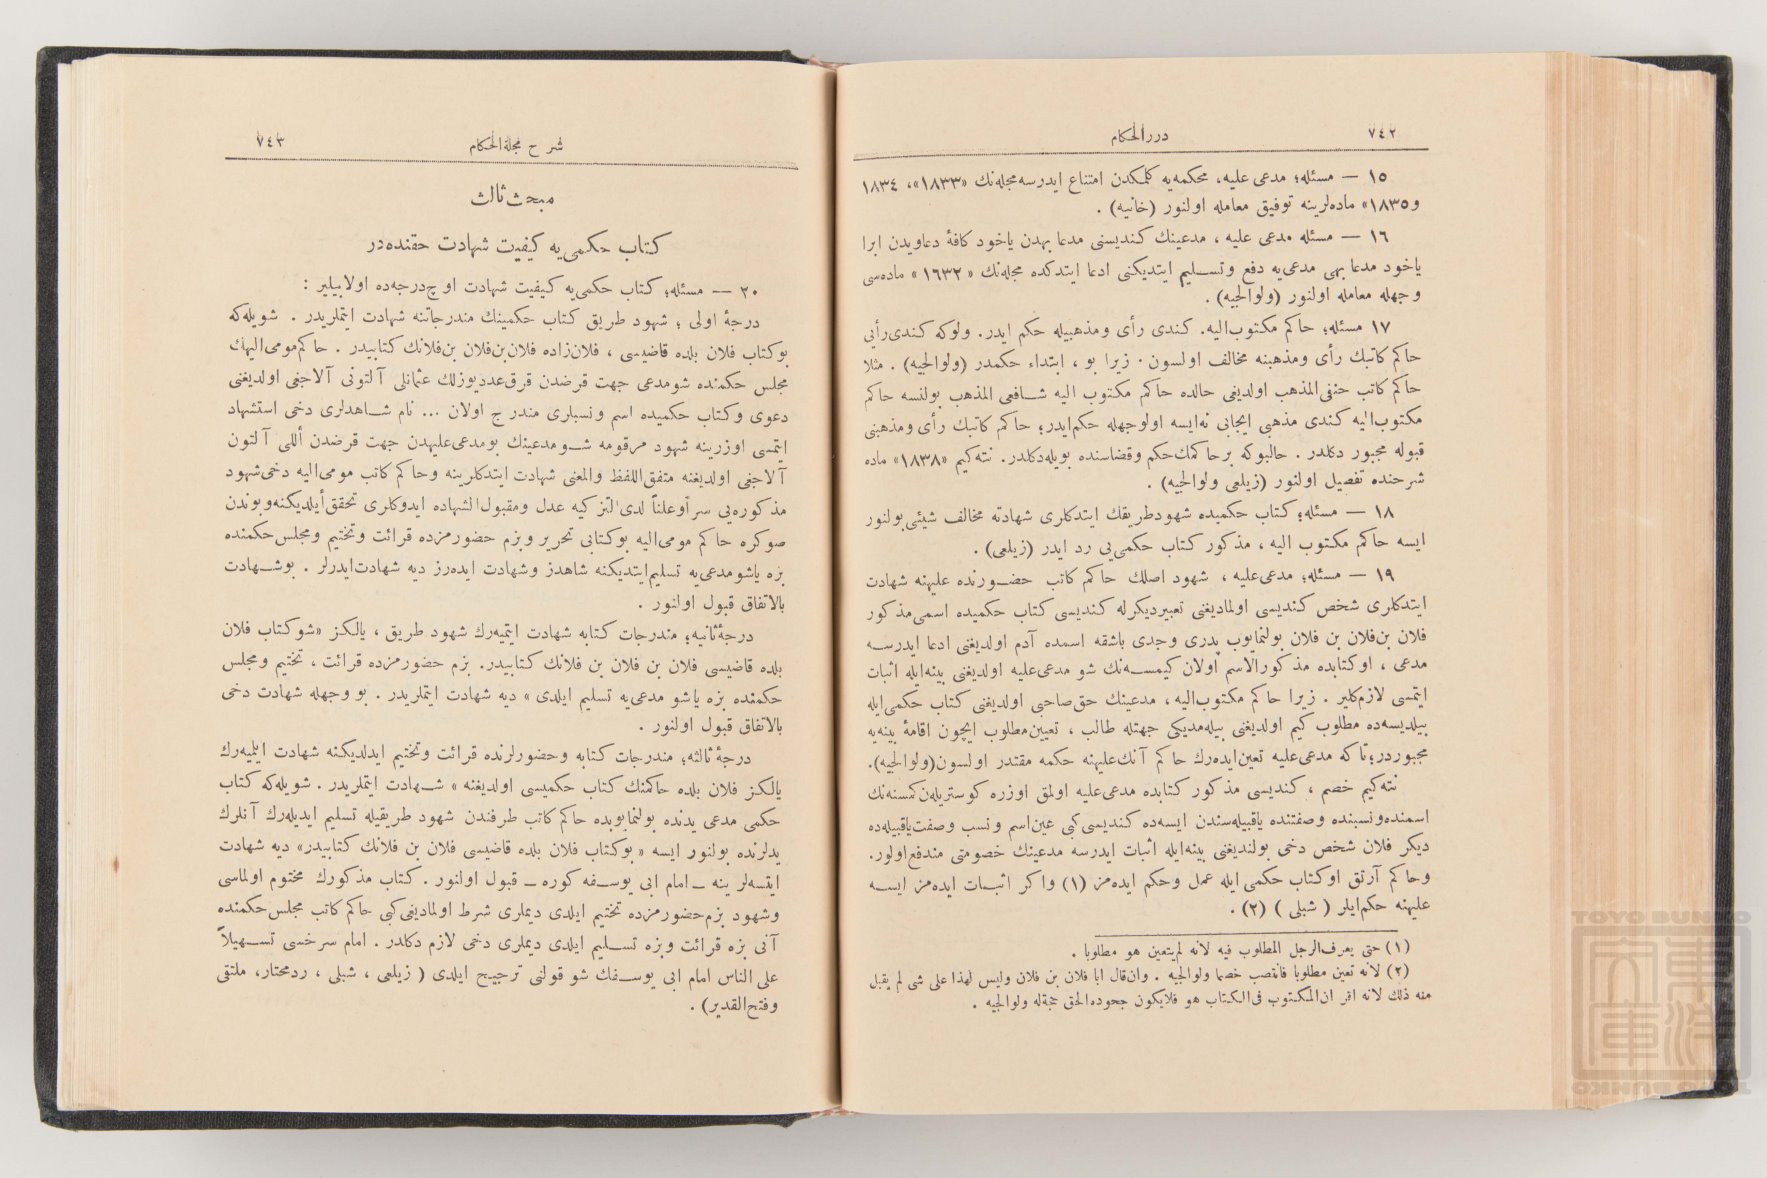 ٧٤٢
دررالحكام
١٥ — مسئله؛ مدعی علیه، محکمه‌یه کلمکدن امتناع ایدرسه مجله‌نك «١٨٣٣»، ١٨٣٤
و١٨٣٥» ماده‌لرینه توفیق معامله اولنور (خانیه) .
١٦ — مسئله مدعی علیه ، مدعینك کندیسنی مدعا بهدن یاخود کافۀ دعاویدن ابرا
یاخود مدعا بهی مدعی‌یه دفع وتسلیم ایتدیکنی ادعا ایتدکده مجله‌نك « ١٦٣٢ » ماده‌سی
وجهله معامله اولنور (ولوالجیه) .
١٧ مسئله؛ حاکم مکتوب‌الیه. کندی رأی ومذهبیله حکم ایدر. ولوکه کندی‌رأیی
حاکم کاتبك رأی ومذهبنه مخالف اولسون . زیرا بو ، ابتداء حکمدر (ولوالجیه) . مثلا
حاکم کاتب حنفی‌المذهب اولدیغی حالده حاکم مکتوب الیه شافعی المذهب بولنسه حاکم
مکتوب‌الیه کندی مذهبی ایجابی نه‌ایسه اولوجهله حکم‌ایدر؛ حاکم کاتبك رأی ومذهبنی
قبوله مجبور دکلدر . حالبوکه برحاکمك‌حکم وقضاسنده بویله‌دکلدر. نته‌کیم «١٨٣٨» ماده
شرحنده تفصیل اولنور (زیلعی ولوالجیه) .
١٨ — مسئله؛ کتاب حکمیده شهودطریقك ایتدکلری شهادته مخالف شیئی‌بولنور
ایسه حاکم مکتوب الیه ، مذکور کتاب حکمی‌یی رد ایدر (زیلعی) .
١٩ — مسئله؛ مدعی‌علیه ، شهود اصلك حاکم کاتب حضورنده علیهنه شهادت
ایتدکلری شخص کندیسی اولمادیغنی تعبیردیکرله کندیسی کتاب حکمیده اسمی‌مذکور
فلان بن‌فلان بن فلان بولنمایوب پدری وجدی باشقه اسمده آدم اولدیغنی ادعا ایدرسه
مدعی ، اوکتابده مذکورالاسم اولان کیمسه‌نك شو مدعی‌علیه اولدیغنی بینه‌ایله اثبات
ایتمسی لازم‌کلیر . زیرا حاکم مکتوب‌الیه ، مدعینك حق‌صاحبی اولدیغنی کتاب حکمی‌ایله
بیلدیسه‌ده مطلوب کیم اولدیغنی بیله‌مدیکی جهتله طالب ، تعیین‌مطلوب ایچون اقامۀ بینه‌یه
مجبوردر؛تاکه مدعی‌علیه تعین‌ایده‌رك حاکم آنك‌علیهنه حکمه مقتدر اولسون(ولوالجیه).
نته‌کیم خصم ، کندیسی مذکور کتابده مدعی‌علیه اولمق اوزره کوستریلن کسنه‌نك
اسمنده‌ونسبنده وصفتنده یاقبیله‌سندن ایسه‌ده کندیسی‌کبی عین‌اسم ونسب وصفت‌یاقبیله‌ده
دیکر فلان شخص دخی بولندیغنی بینه‌ایله اثبات ایدرسه مدعینك خصومتی مندفع‌اولور.
وحاکم آرتق اوکتاب حکمی ایله عمل وحکم ایده‌من (١) واکر اثبات ایده‌من ایسه
علیهنه حکم‌ایلر ( شبلی ) (٢) .
(١) حتی یعرف‌الرجل المطلوب فیه لانه لم‌یتعین هو مطلوبا .
(٢) لانه تعین مطلوبا فانتصب خصما ولوالجیه . وان‌قال انا فلان بن فلان ولیس لهذا علی شی لم یقبل
منه ذلك لانه اقر ان‌المکتوب فی‌الکتاب هو فلایکون جحوده‌الحق حجةله ولوالجیه .
شرح مجلةالحکام
٧٤٣
مبحث ثالث
کتاب حکمی‌یه کیفیت شهادت حقنده‌در
٢٠ — مسئله؛ کتاب حکمی‌یه کیفیت شهادت اوچ‌درجه‌ده اولابیلیر :
درجۀ اولی ؛ شهود طریق کتاب حکمینك مندرجاتنه شهادت ایتملریدر . شویله‌که
بوکتاب فلان بلده قاضیسی ، فلان‌زاده فلان‌بن‌فلان بن‌فلانك کتابیدر . حاکم‌مومی‌الیهك
مجلس حکمنده شومدعی جهت قرضدن قرق‌عددیوزلك عثمانلی آلتونی آلاجغی اولدیغنی
دعوی وکتاب حکمیده اسم ونسبلری مندرج اولان ... نام شاهدلری دخی استشهاد
ایتمسی اوزرینه شهود مرقومه شو مدعینك بومدعی‌علیهدن جهت قرضدن أللی آلتون
آلاجغی اولدیغنه متفق‌اللفظ والمعنی شهادت ایتدکلرینه وحاکم کاتب مومی‌الیه دخی‌شهود
مذکوره‌یی سراًوعلناً لدی‌التزکیه عدل ومقبول‌الشهاده ایدوکلری تحقق‌أیلدیکنه‌وبوندن
صوکره حاکم مومی‌الیه بوکتابی تحریر وبزم حضورمزده قرائت وتختیم ومجلس‌حکمنده
بزه یاشومدعی‌یه تسلیم‌ایتدیکنه شاهدز وشهادت ایده‌رز دیه شهادت‌ایدرلر . بوشهادت
بالاتفاق قبول اولنور .
درجۀثانیه؛ مندرجات کتابه شهادت ایتمیه‌رك شهود طریق ، یالکز «شوکتاب فلان
بلده قاضیسی فلان بن فلان بن فلانك کتابیدر. بزم حضورمزده قرائت ، تختیم ومجلس
حکمنده بزه یاشو مدعی‌یه تسلیم ایلدی » دیه شهادت ایتملریدر . بو وجهله شهادت دخی
بالاتفاق قبول اولنور .
درجۀثالثه؛ مندرجات کتابه وحضورلرنده قرائت وتختیم ایدلدیکنه شهادت ایلیه‌رك
یالکز فلان بلده حاکمنك کتاب حکمیسی اولدیغنه » شهادت ایتملریدر . شویله‌که کتاب
حکمی مدعی یدنده بولنمایوبده حاکم کاتب طرفندن شهود طریقیله تسلیم ایدیله‌رك آنلرك
یدلرنده بولنور ایسه «بوکتاب فلان بلده قاضیسی فلان بن فلانك کتابیدر» دیه شهادت
ایتسه‌لر ینه ــ امام ابی یوسفه کوره ــ قبول اولنور . کتاب مذکورك مختوم اولماسی
وشهود بزم‌حضورمزده تختیم ایلدی دیملری شرط اولمادیغی‌کبی حاکم کاتب مجلس‌حکمنده
آنی بزه قرائت وبزه تسلیم ایلدی دیملری دخی لازم دکلدر . امام سرخسی تسهیلاً
علی الناس امام ابی یوسفك شو قولنی ترجیح ایلدی ( زیلعی ، شبلی ، ردمحتار، ملتقی
وفتح‌القدیر) .
TOYO BUNKO
東洋文庫